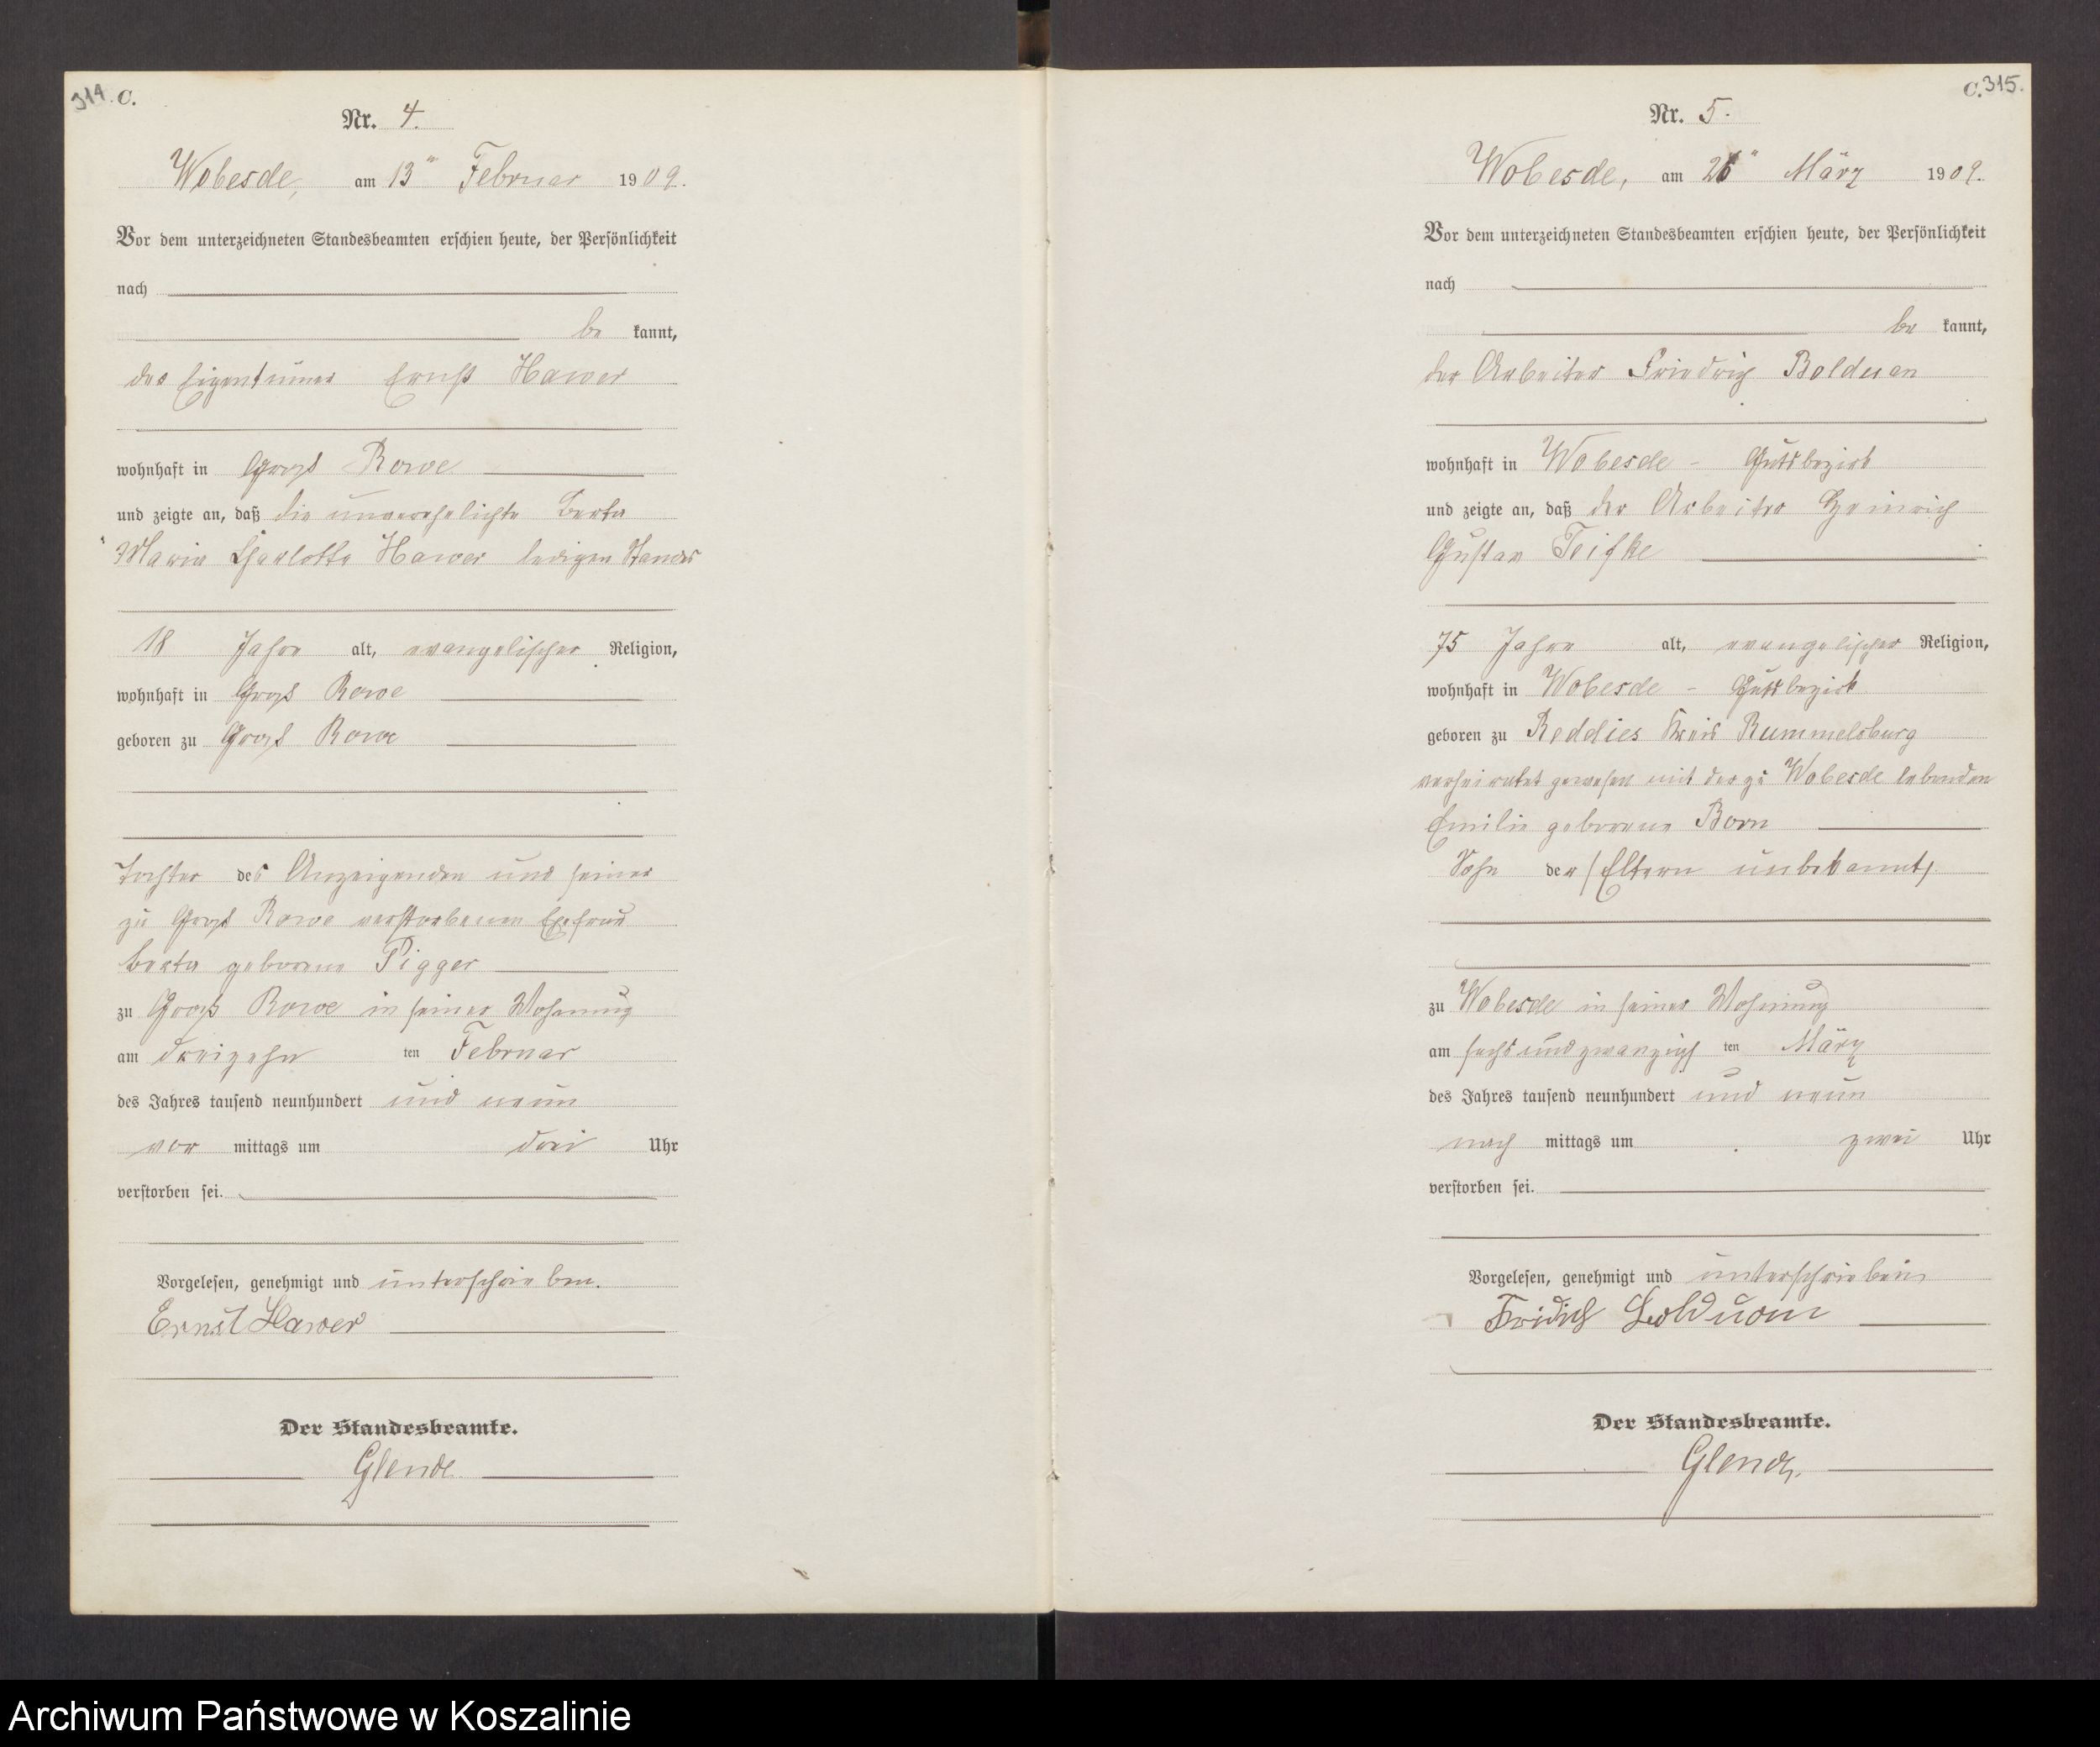 314. C.
Nr. 4.
Wobesde, am 13ten Februar 1909.
Vor dem unterzeichneten Standesbeamten erschien heute, der Persönlichkeit
nach
be kannt,
der Eigentümer Ernst Hawer
wohnhaft in Groß Rowe
und zeigte an, daß die unverehelichte Berta
Maria Charlotte Hawer ledigen Standes
18 Jahre alt, evangelischer Religion,
wohnhaft in Groß Rowe
geboren zu Groß Rowe
Tochter des Anzeigenden und seiner
zu Groß Rowe verstorbenen Ehefrau
Berta geborene Pigger
zu Groß Rowe in seiner Wohnung
am dreizehn ten Februar
des Jahres tausend neunhundert und neun
vor mittags um drei Uhr
verstorben sei.
Vorgelesen, genehmigt und unterschrieben.
Ernst Hawer
Der Standesbeamte.
Glende
C. 315.
Nr. 5.
Wobesde, am 26ten März 1909.
Vor dem unterzeichneten Standesbeamten erschien heute, der Persönlichkeit
nach
be kannt,
der Arbeiter Friedrich Bolduan
wohnhaft in Wobesde - Gutsbezirk
und zeigte an, daß der Arbeiter Heinrich
Gustav Teifke
75 Jahre alt, evangelischer Religion,
wohnhaft in Wobesde - Gutsbezirk
geboren zu Reddies Kreis Rummelsburg
verheiratet gewesen mit der zu Wobesde lebenden
Emilie geborene Born
Sohn der (Eltern unbekannt)
zu Wobesde in seiner Wohnung
am sechsundzwanzigsten ten März
des Jahres tausend neunhundert und neun
nach mittags um zwei Uhr
verstorben sei.
Vorgelesen, genehmigt und unterschrieben
Fridich Bolduan
Der Standesbeamte.
Glende.
Archiwum Państwowe w Koszalinie